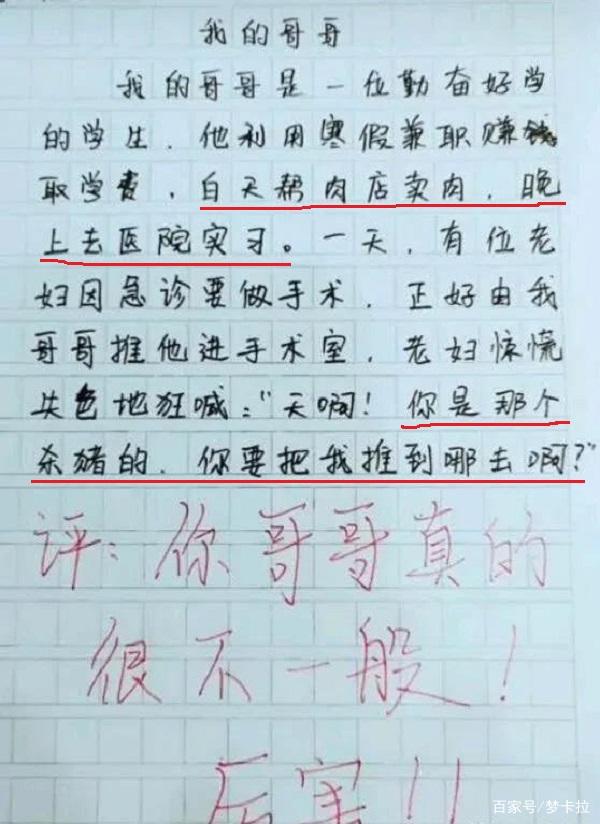 我的哥哥
我的哥哥是一位勤奋好学
的学生．他利用寒假兼职赚钱
取学费，白天帮肉店卖肉．晚
上去医院实习。一天，有位老
妇因急诊要做手术．正好由我
哥哥推他进手术室，老妇惊慌
失色地狂喊：“天啊！你是那个
杀猪的．你要把我推到哪去啊？”
评：你哥哥真的
很不一般！
厉害！！
百家号/梦卡拉